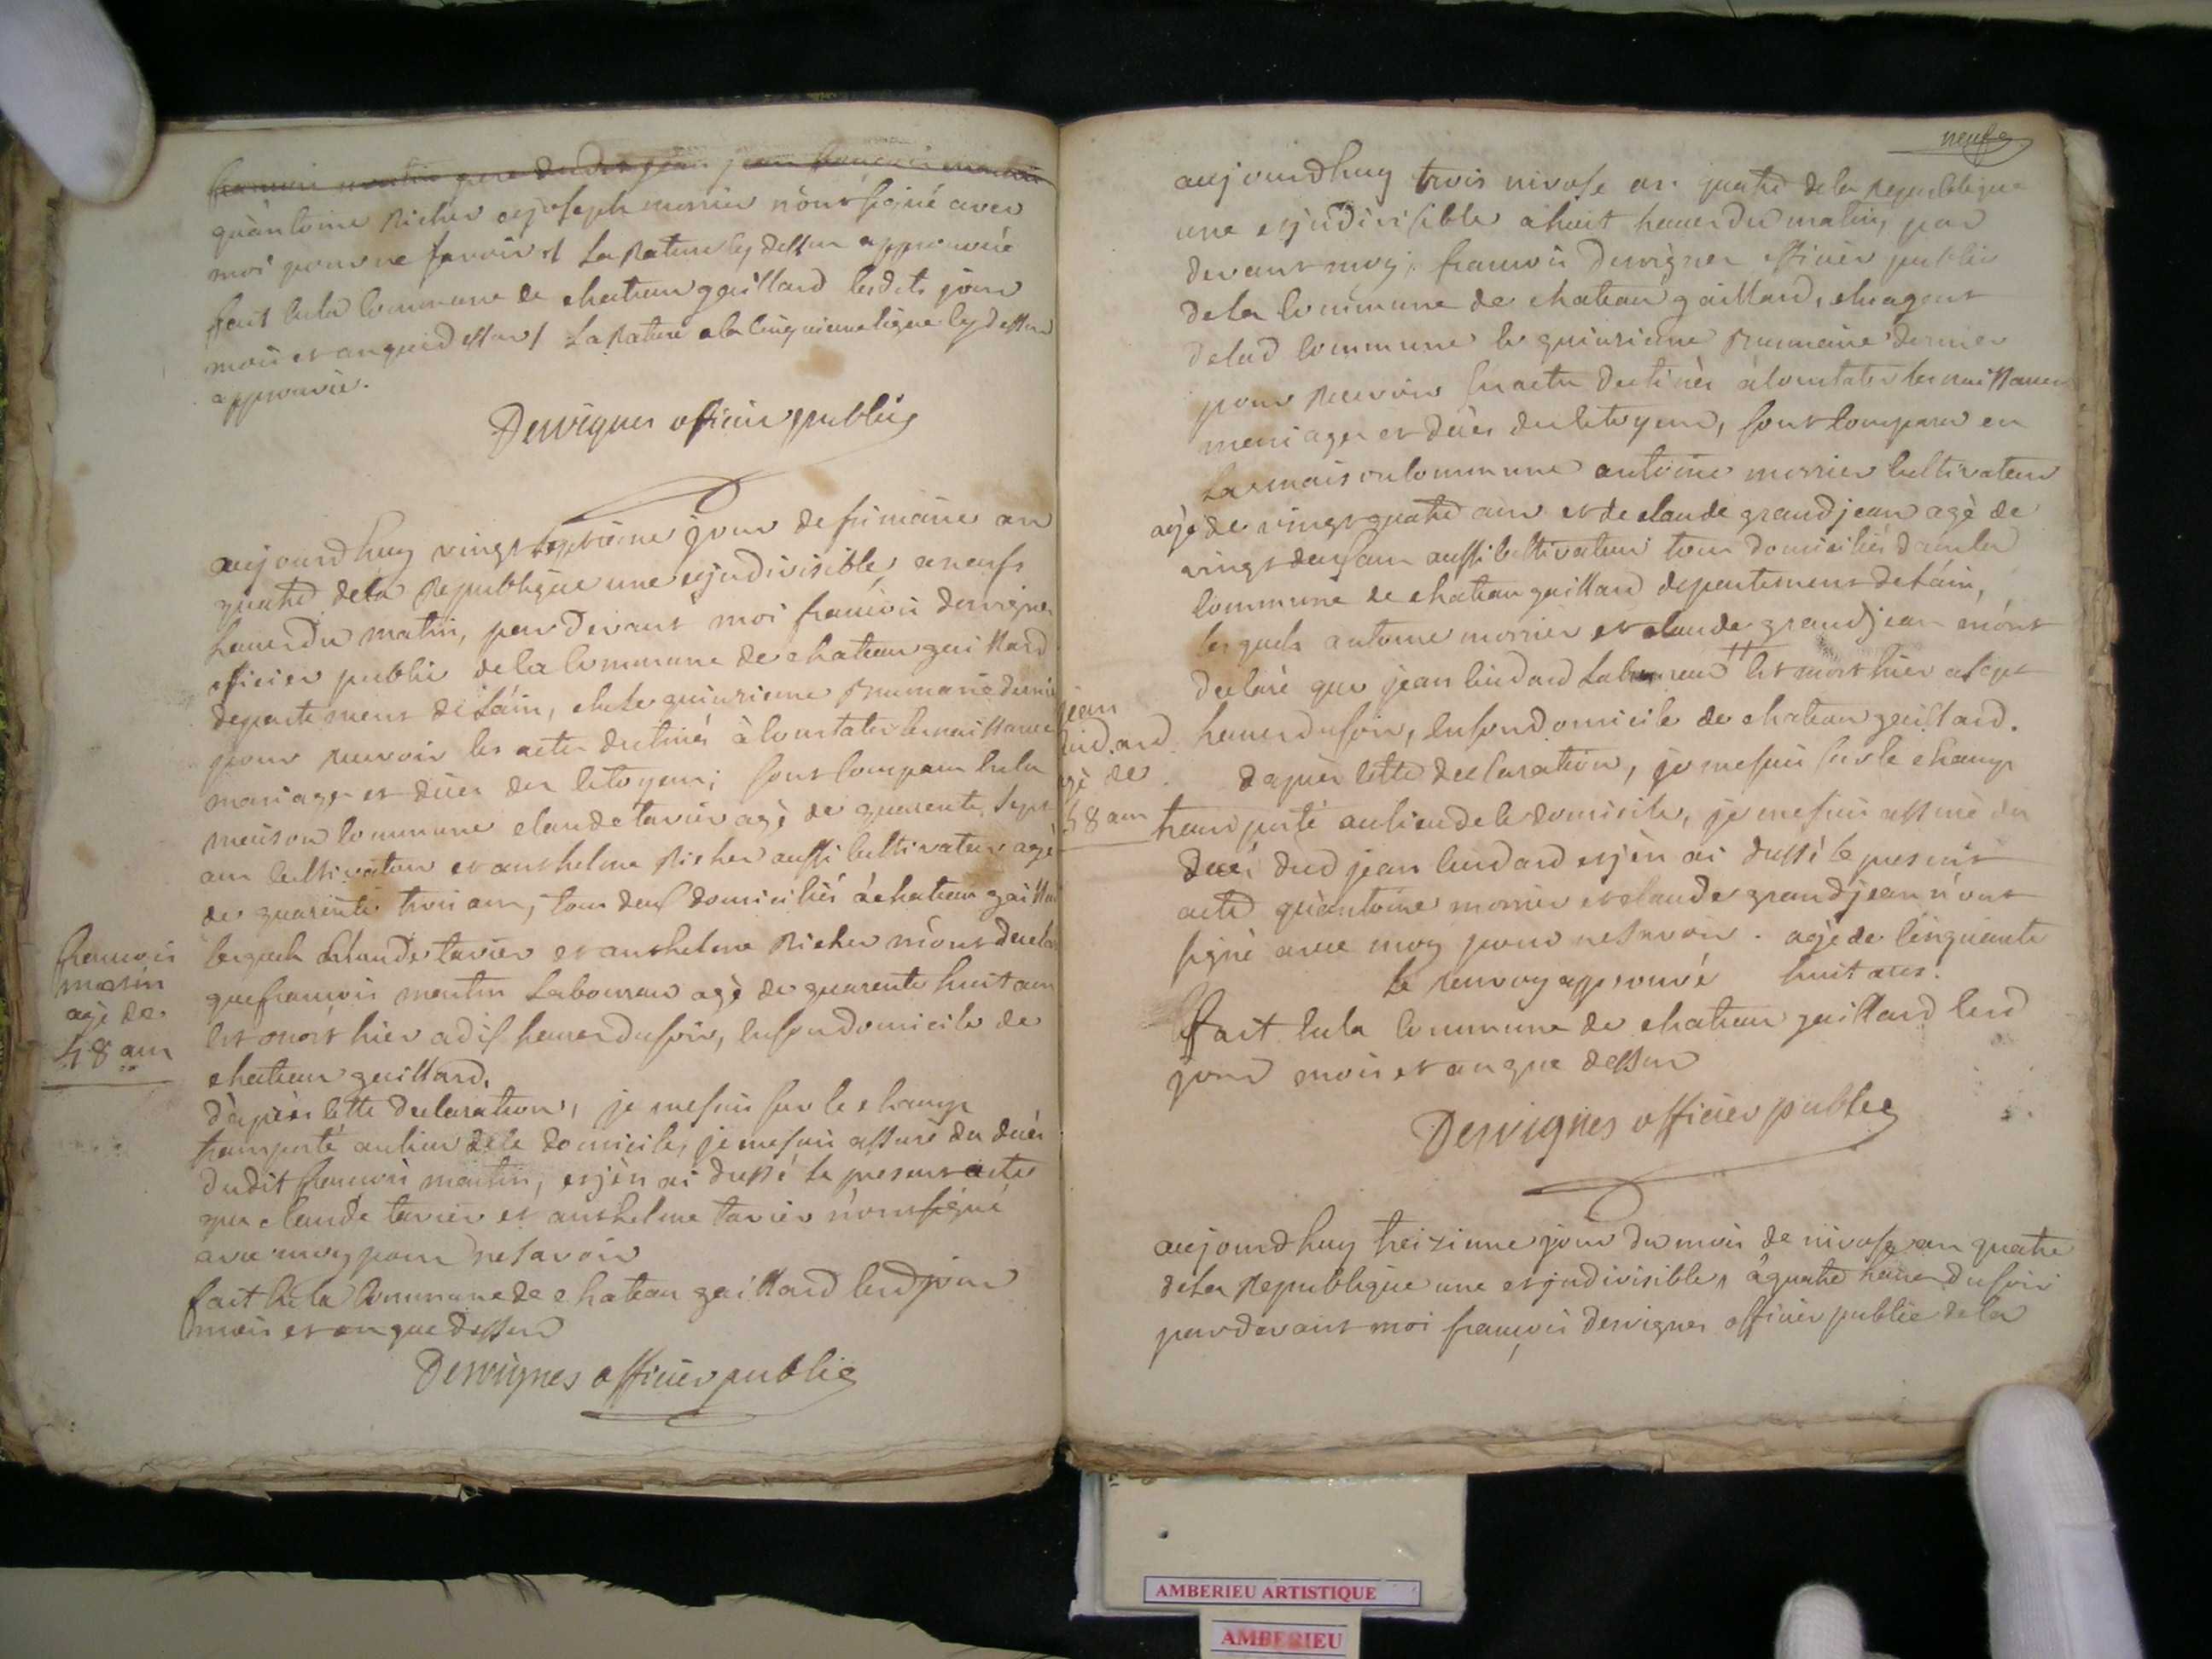 francois martin pere dudit jean jean francois martin
qu'antoine Richer et joseph morrier n'ont signé avec
moi pour ne savoir / La Rature cy dessus approuvée
fait en la Commune de chateau gaillard lesdits jour
mois et an que dessus / La Rature a la cinquieme ligne cy dessus
approuvée.
Dervignes officier public
aujourdhuy vingt septième jour de frimaire an
quatre de la Republique une et jndivisible, a neufs
heures du matin, par devant moi francois dervignes
officier public de la Commune de chateau gaillard
departement de l'ain, elu le quinzieme Brumaire dernier
pour recevoir les actes destinés à Constater les naissances
mariages et décès des Citoyens; sont Comparu en la
maison Commune claude tavier agé de quarente sept
ans Cultivateur et anthelme Richer aussi Cultivateur agé
de quarente trois ans, tous deux domiciliés à chateau gaillard
lesquels Claude tavier et anthelme Richer m'ont declaré
que francois martin Laboureur agé de quarente huit ans
Est mort hier a dix heures du soir, en son domicile de
chateau gaillard.
d'après Cette declaration, je me suis sur le champ
transporté au lieu de ce domicile, je me suis assuré du décès
dudit francois martin, et j'en ai dressé le present acte
que claude tavier et anthelme tavier n'ont signé
avec moy pour ne savoir
fait en la Commune de chateau gaillard lesd jour
mois et an que dessus
Dervignes officier public
francois
martin
agé de
48 ans
neuf
aujourdhuy trois nivose an quatre de la Republique
une et jndivisible a huit heures du matin, par
devant moy, francois Dervignes officier public
de la Commune de chateau gaillard, elu agent
de lad Commune le quinzieme Brumaire dernier
pour recevoir les actes destinés à Constater les naissances
mariages et décès des Citoyens, sont Comparu en
La maison Commune antoine morrier Cultivateur
agé de vingt quatre ans et de claude grandjean agé de
vingt deux ans aussi Cultivateur tous domiciliés dans la
Commune de chateau gaillard departement de l'ain,
lesquels antoine morrier et claude grandjean m'ont
declaré que jean Cuidard Laboureur // Est mort hier a sept
heures du soir, en son domicile de chateau gaillard.
d'après Cette declaration, je me suis sur le champ
transporté au lieu de ce domicile, je me suis assuré du
décès dud jean Cuidard et j'en ai dressé le present
acte qu'antoine morrier et claude grandjean n'ont
signé avec moy pour ne savoir. agé de Cinquante
Le renvoy approuvé huit ans.
fait en la Commune de chateau gaillard lesd
jour mois et an que dessus
Dervignes officier public
jean
Cuidard
agé de
58 ans
aujourdhuy treizieme jour du mois de nivose an quatre
de la Republique une et jndivisible, à quatre heures du soir
par devant moi francois dervignes officier public de la
AMBERIEU ARTISTIQUE
AMBERIEU